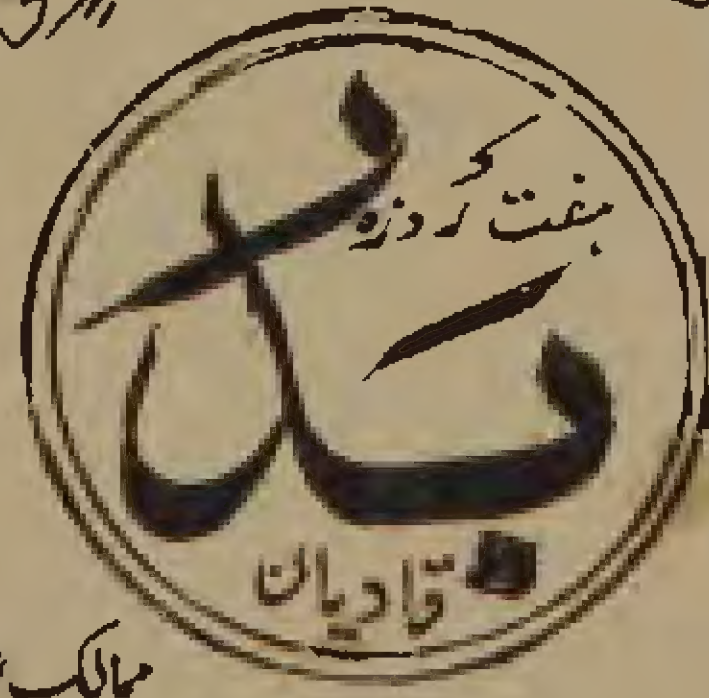 ہفت روزہ
بدر
قادیان
ممالک